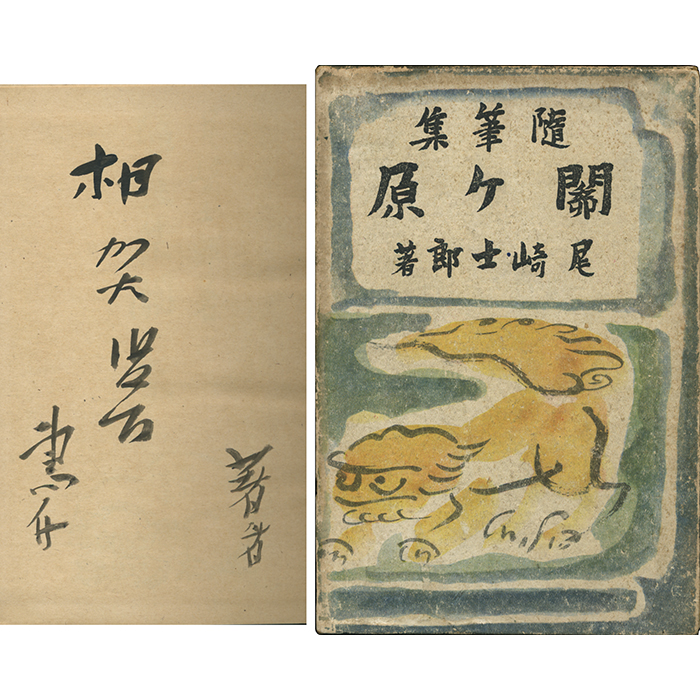 隨筆集
關ケ原
尾崎士郎著
相賀
惠存
著者